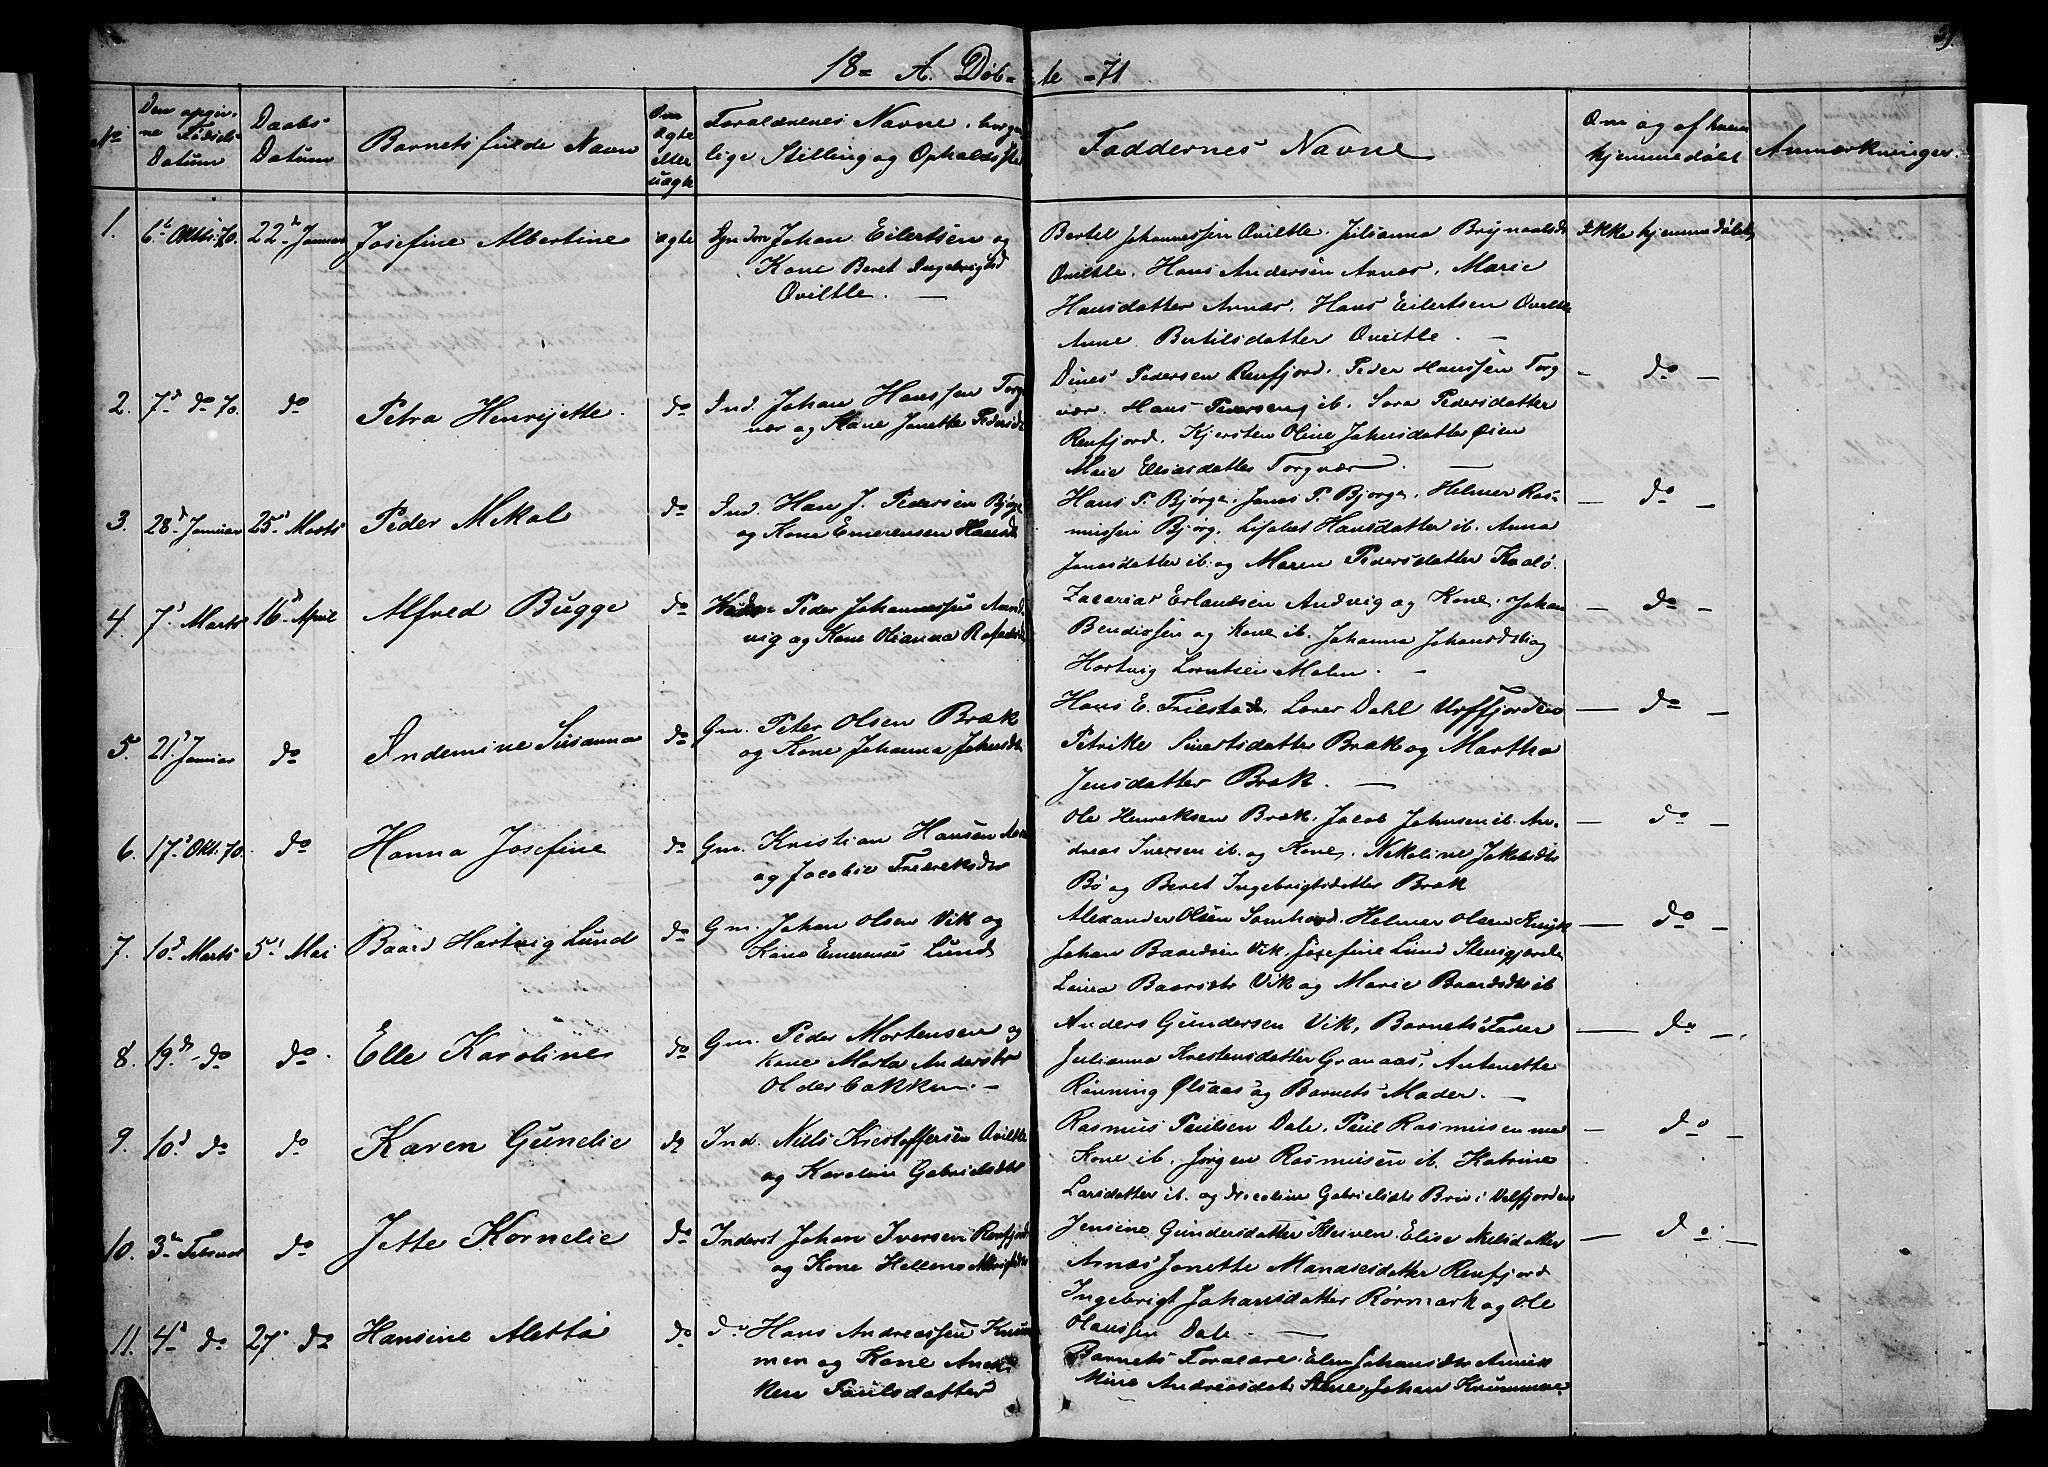 18= A. Døb= te =71
No
Den opgiv-
ne Fødsels
Datum
Daabs
Datum
Barnets fulde Navn
Om
ægte
eller
uægte
Forældrenes Navne, borger-
lige Stilling og Opholdssted
Faddernes Navne
Om og af hvem
hjemmedøbt
Anmærkninger
1. 6te Oktbr. 70. 22de Januar Josefine Albertine ægte Johan Eilertsen og
Kone Beret Ingebrigtsd
Qviltle. —
Bertel Johannessen Qviltle. Julianna Brynaldsd
Qviltle. Hans Andersen Arnæs. Marie
Hansdatter Arnæs. Hans Eilertsen Qviltle
Anne Bertilsdatter Qviltle. —
Ikke hjemmedøbt
2. 7d do 70. do Petra Henrijette. do Ind. Johan Hanssen Torg
vær og Kone Janette Pedersd
Dines Pedersen Renfjord. Peder Hanssen Torg
vær. Hans Pedersen ib. Sara Pedersdatter
Renfjord. Kjersten Oline Jahnsdatter Øien
Marie Eliasdatter Torgvær. —
— do —
3. 28d Januar 25d Marts Peder Mikal do Ind. Han J. Pedersen Bjørge
og Kone Emerensen Hansd
Hans P. Bjørge. Jonas P. Bjørge. Helmer Ras-
mussen Bjørg. Lisabet Hansdatter ib. Anna
Jonasdatter ib. og Maren Pedersdatter Kalø.
— do —
4. 7d Marts 16d April Alfred Bugge do Peder Johannessen And
vig og Kone Olianna
Zacarias Erlandsen Andvig og Kone. Johan
Bendixsen og Kone ib. Johanna Johansd ib og
Hartvig Lorntsen Malm. —
— do —
5. 21d Januar do Indemine Susanna do Gm. Peter Olsen Bræk
og Kone Johanna Johnsdtr
Hans E. Trælstad. Dahl
Petrike Sivertsdatter Bræk og Martha
Jensdatter Bræk. —
— do —
6. 17d Okt. 70. do Hanna Josefine do Gm. Kristian Hansen
og Jacobie Fredreksdtr
Ole Henreksen Bræk. Jacob Johnsen ib. An-
dreas Iversen ib. og Kone. Nikoline Jakobsdtr
Bø og Beret Ingebrigtsdatter Bræk
— do —
7. 10d Marts 5d Mai Baard Hartvig Lund do Gm. Johan Olsen Vik og
Kone Emerense Lund
Alexander Olsen Helmer Olsen
Johan Baardsen Vik. Josefine Lund
Baardsdtr Vik og Marie Baardsdtr ib
— do —
8. 19d do do. Elle Karoline do Gm. Peder Mortensen og
Kone Marta Andersdtr
Olderbakken. —
Anders Gundersen Vik, Barnets Fader
Julianna Krestensdatter Granaas, Antonette
Rønning Ølsaas og Barnets Moder. —
— do —
9. 10d do do Karen Gunelie do Ind. Niels Kristoffersen Qviltle
og Karoline Gabrielsdtr
Rasmus Paulsen Dale. Paul Rasmusen med
Kone ib. Jørgen Rasmusen ib. Katrine
Larsdatter ib. og Nicoline Gabrielsdtr i Velfjorden
— do —
10. 3de Februar do Jette Kornelie do Inderst Johan Iversen Renfjord
og Kone Hellene
Jensine Gundersdatter Elise Nilsdatter
Arnæs Jonette Manasesdatter Renfjord
Ingebrigt Johansdatter Rørmark og Ole
Olaussen Dale —
— do —
11. 4d do 27d do Hansine Aletta do do Hans Andreassen Krum
men og Kone Anne
ken Paulsdatter
Barnets Forældre. Johansdtr
Mine Andreasdat. Johan Krummen